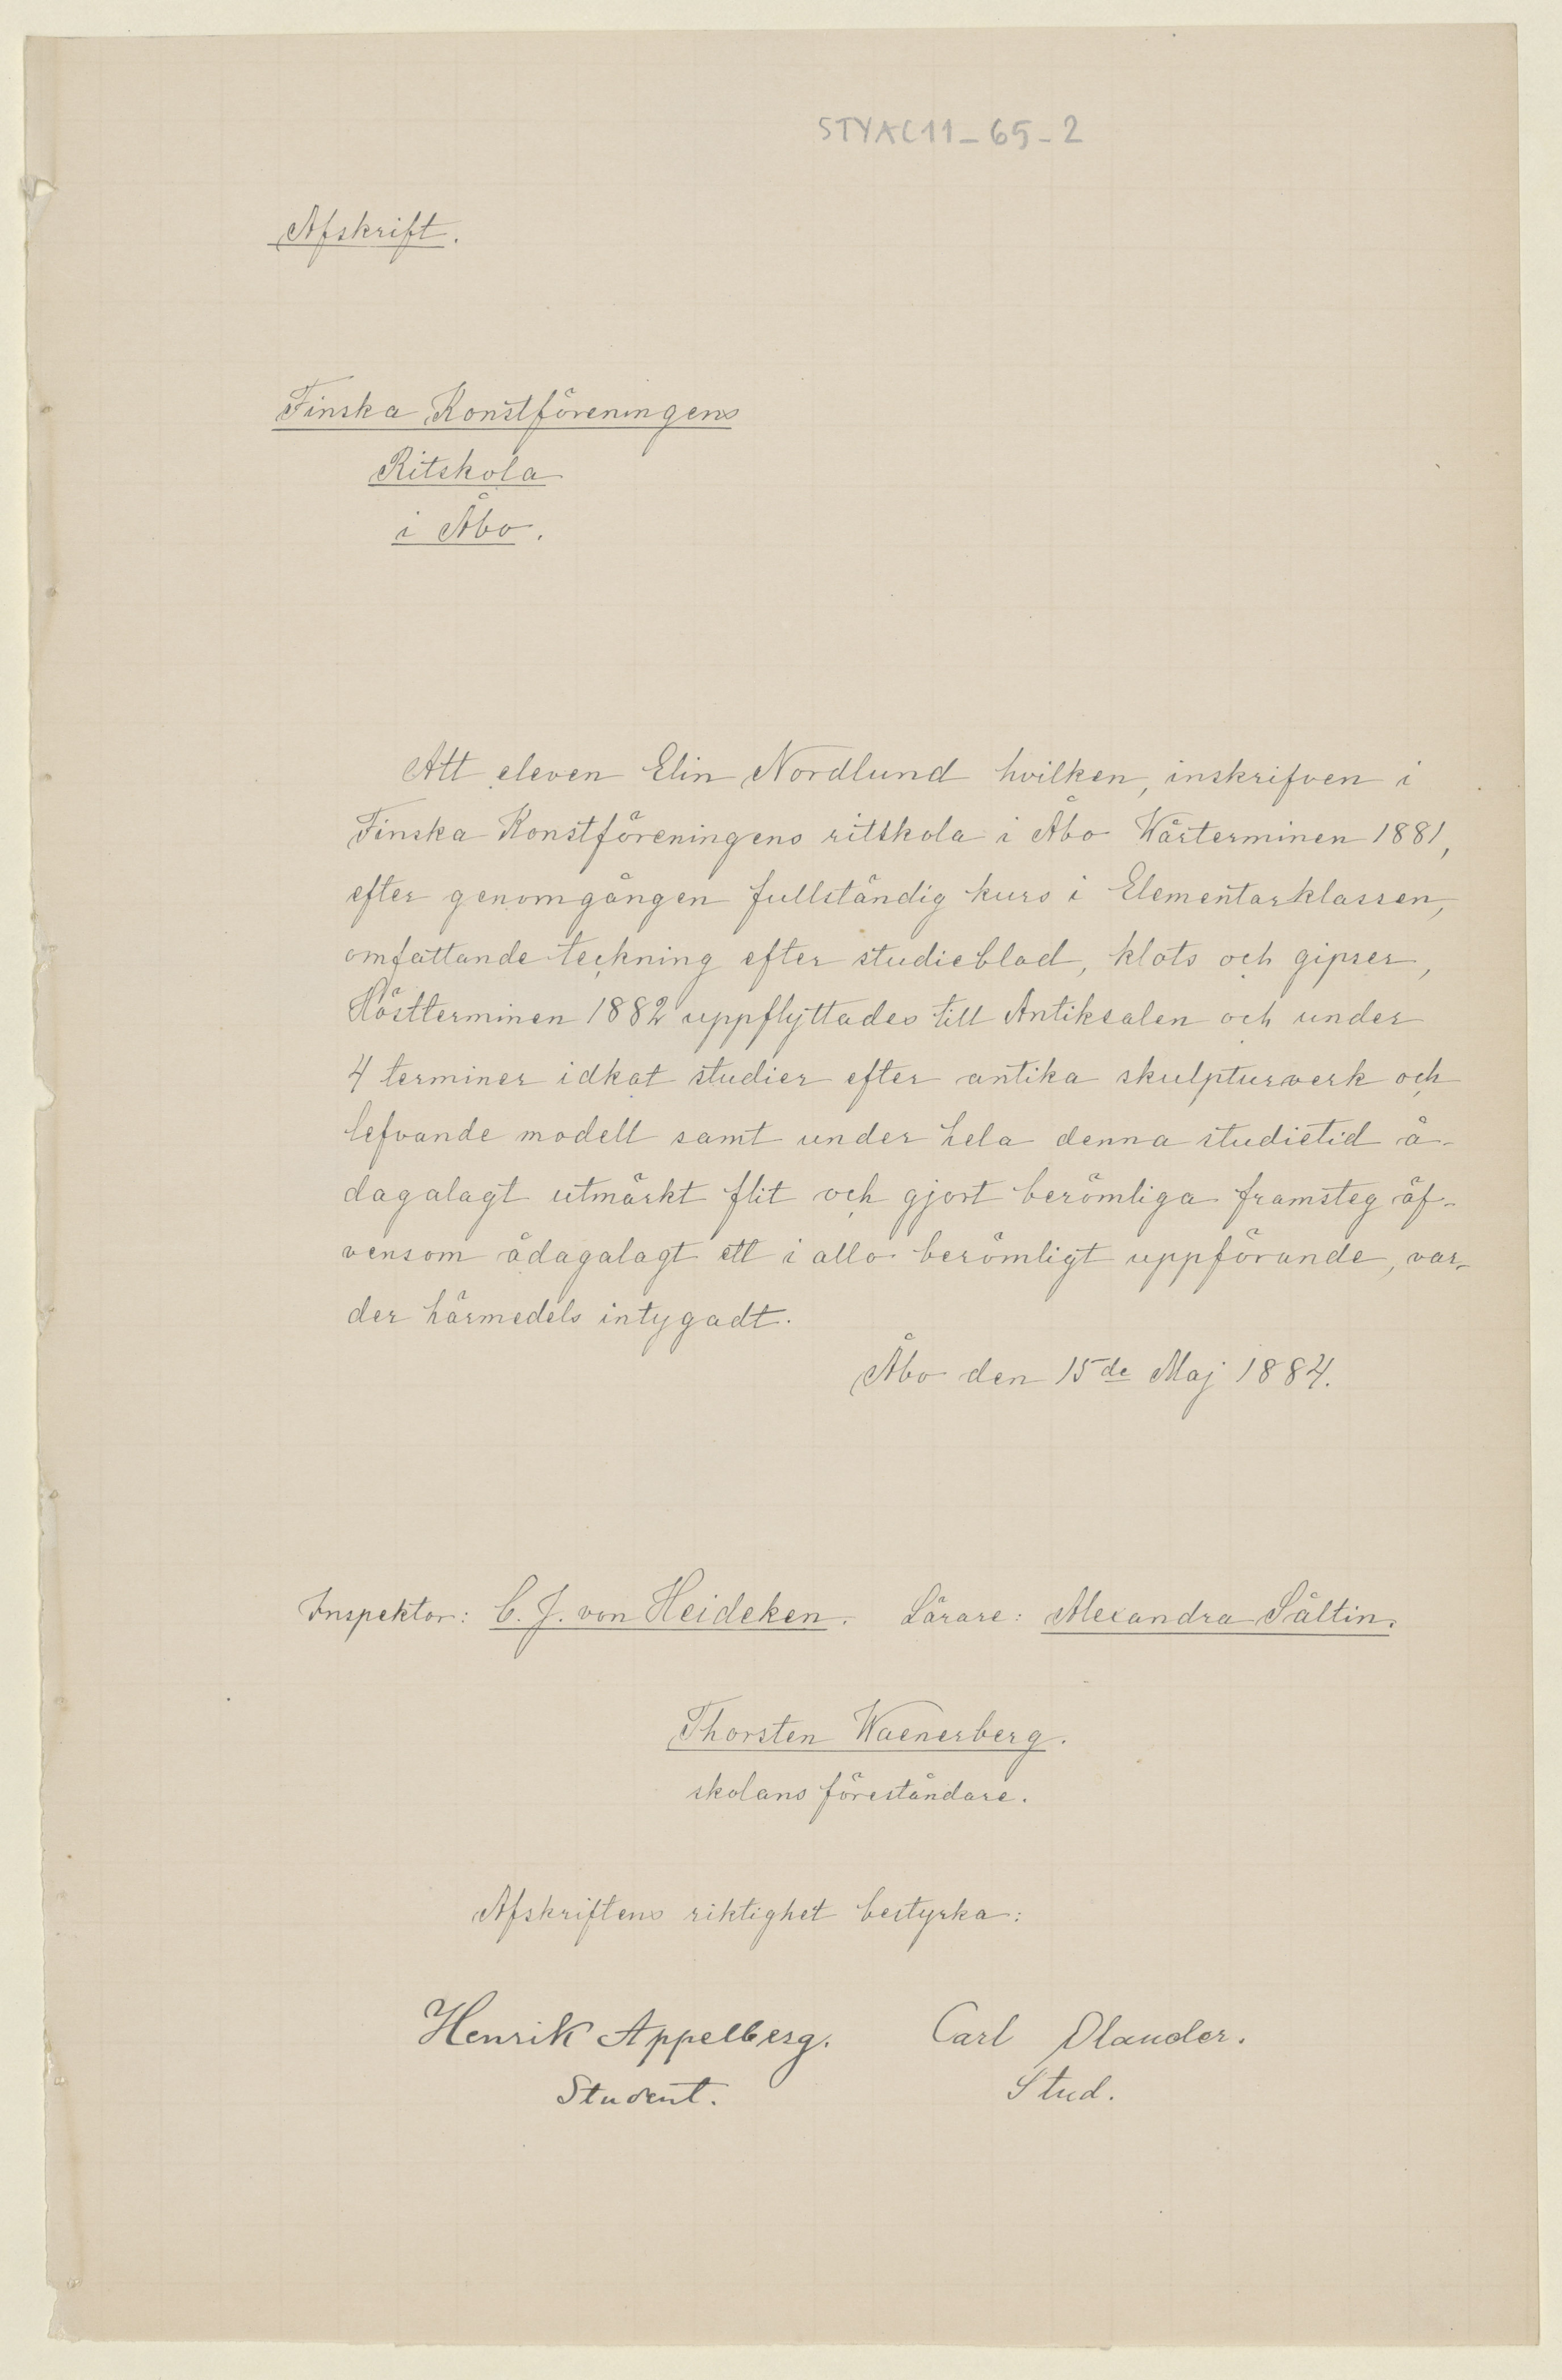 STYAC11_65_2
Afskrift.
Finska Konstföreningens
Ritskola
i Åbo.
Att eleven Elin Nordlund hvilken, inskrifven i
Finska Konstföreningens ritskola i Åbo Wårterminen 1881,
efter genomgången fullständig kurs i Elementarklassen,
omfattande teckning efter studieblad, klots och gipser,
Höstterminen 1882 uppflyttades till Antiksalen och under
4 terminer idkat studier efter antika skulpturverk och
lefvande modell samt under hela denna studietid å-
dagalagt utmärkt flit och gjort berömliga framsteg äf-
vensom ådagalagt ett i allo berömligt uppförande, var-
der härmedels intygadt.
Åbo den 15de Maj 1884.
Inspektor: C. J. von Heideken. Lärare: Alexandra Såltin.
Thorsten Waenerberg.
skolans föreståndare.
Afskriftens riktighet bestyrka:
Henrik Appelberg. Carl Olander.
Student. Stud.